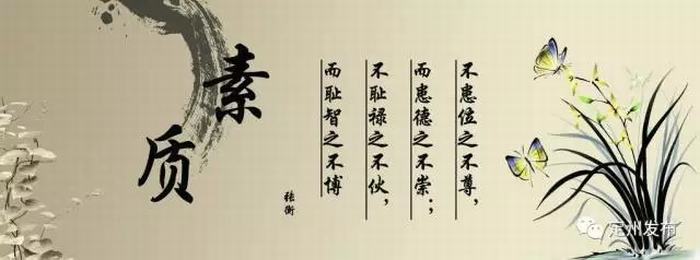 素质
不患位之不尊，
而患德之不崇；
不耻禄之不伙，
而耻智之不博
张衡
定州发布